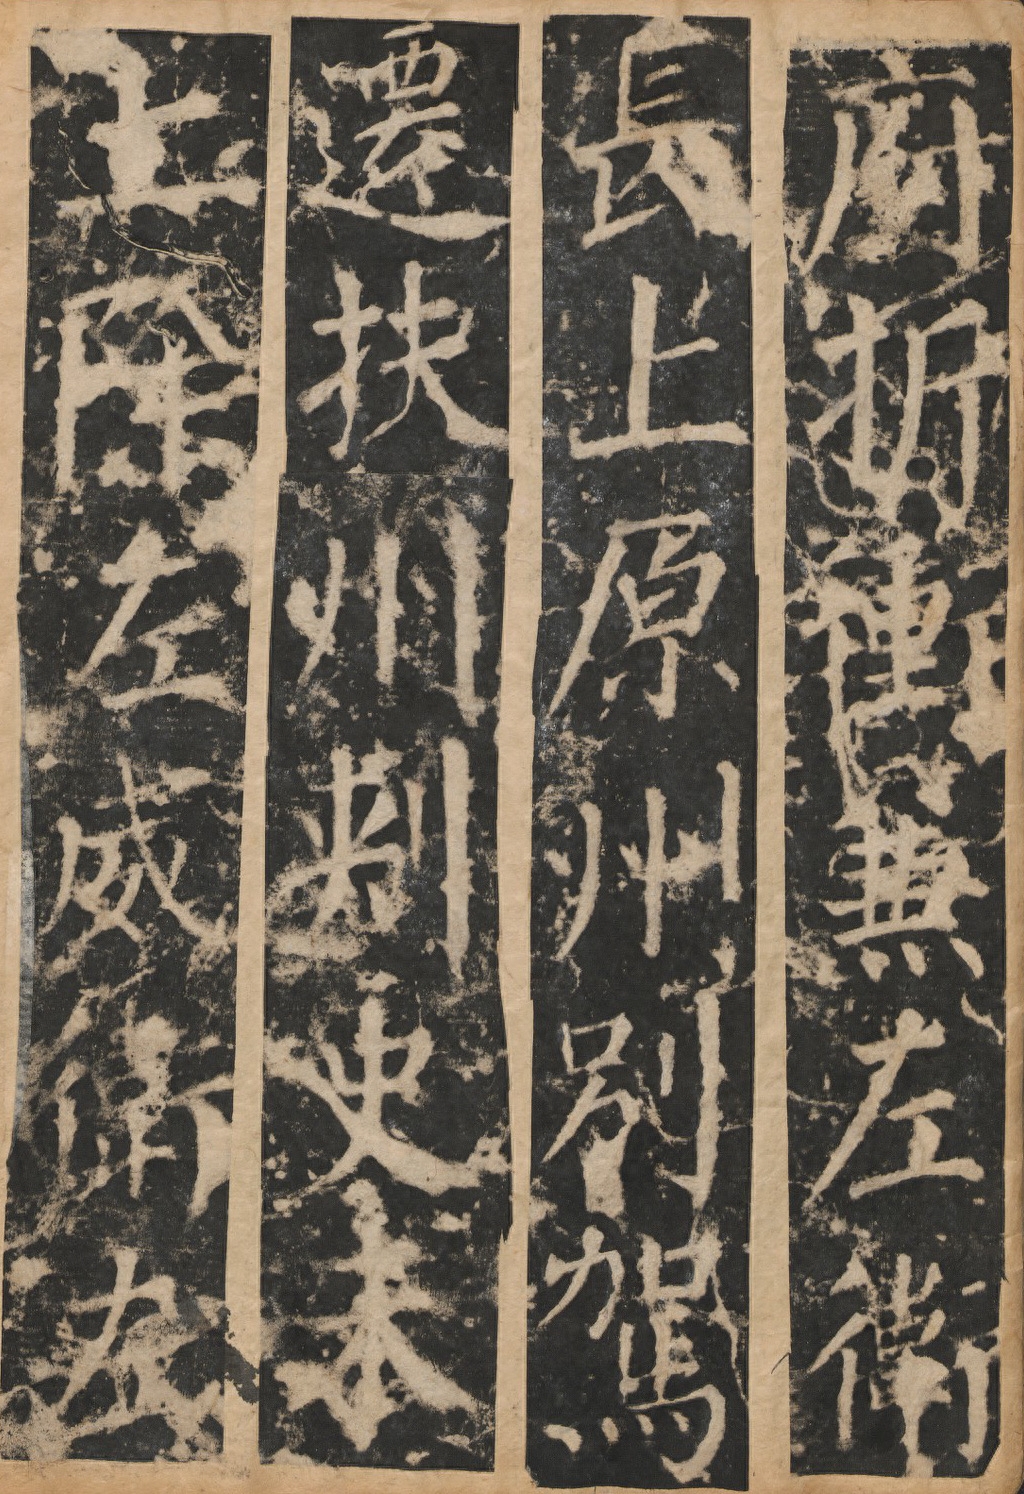 府折衝兼左衛
長上原州別駕
遷扶州刺史未
上除左威衛左